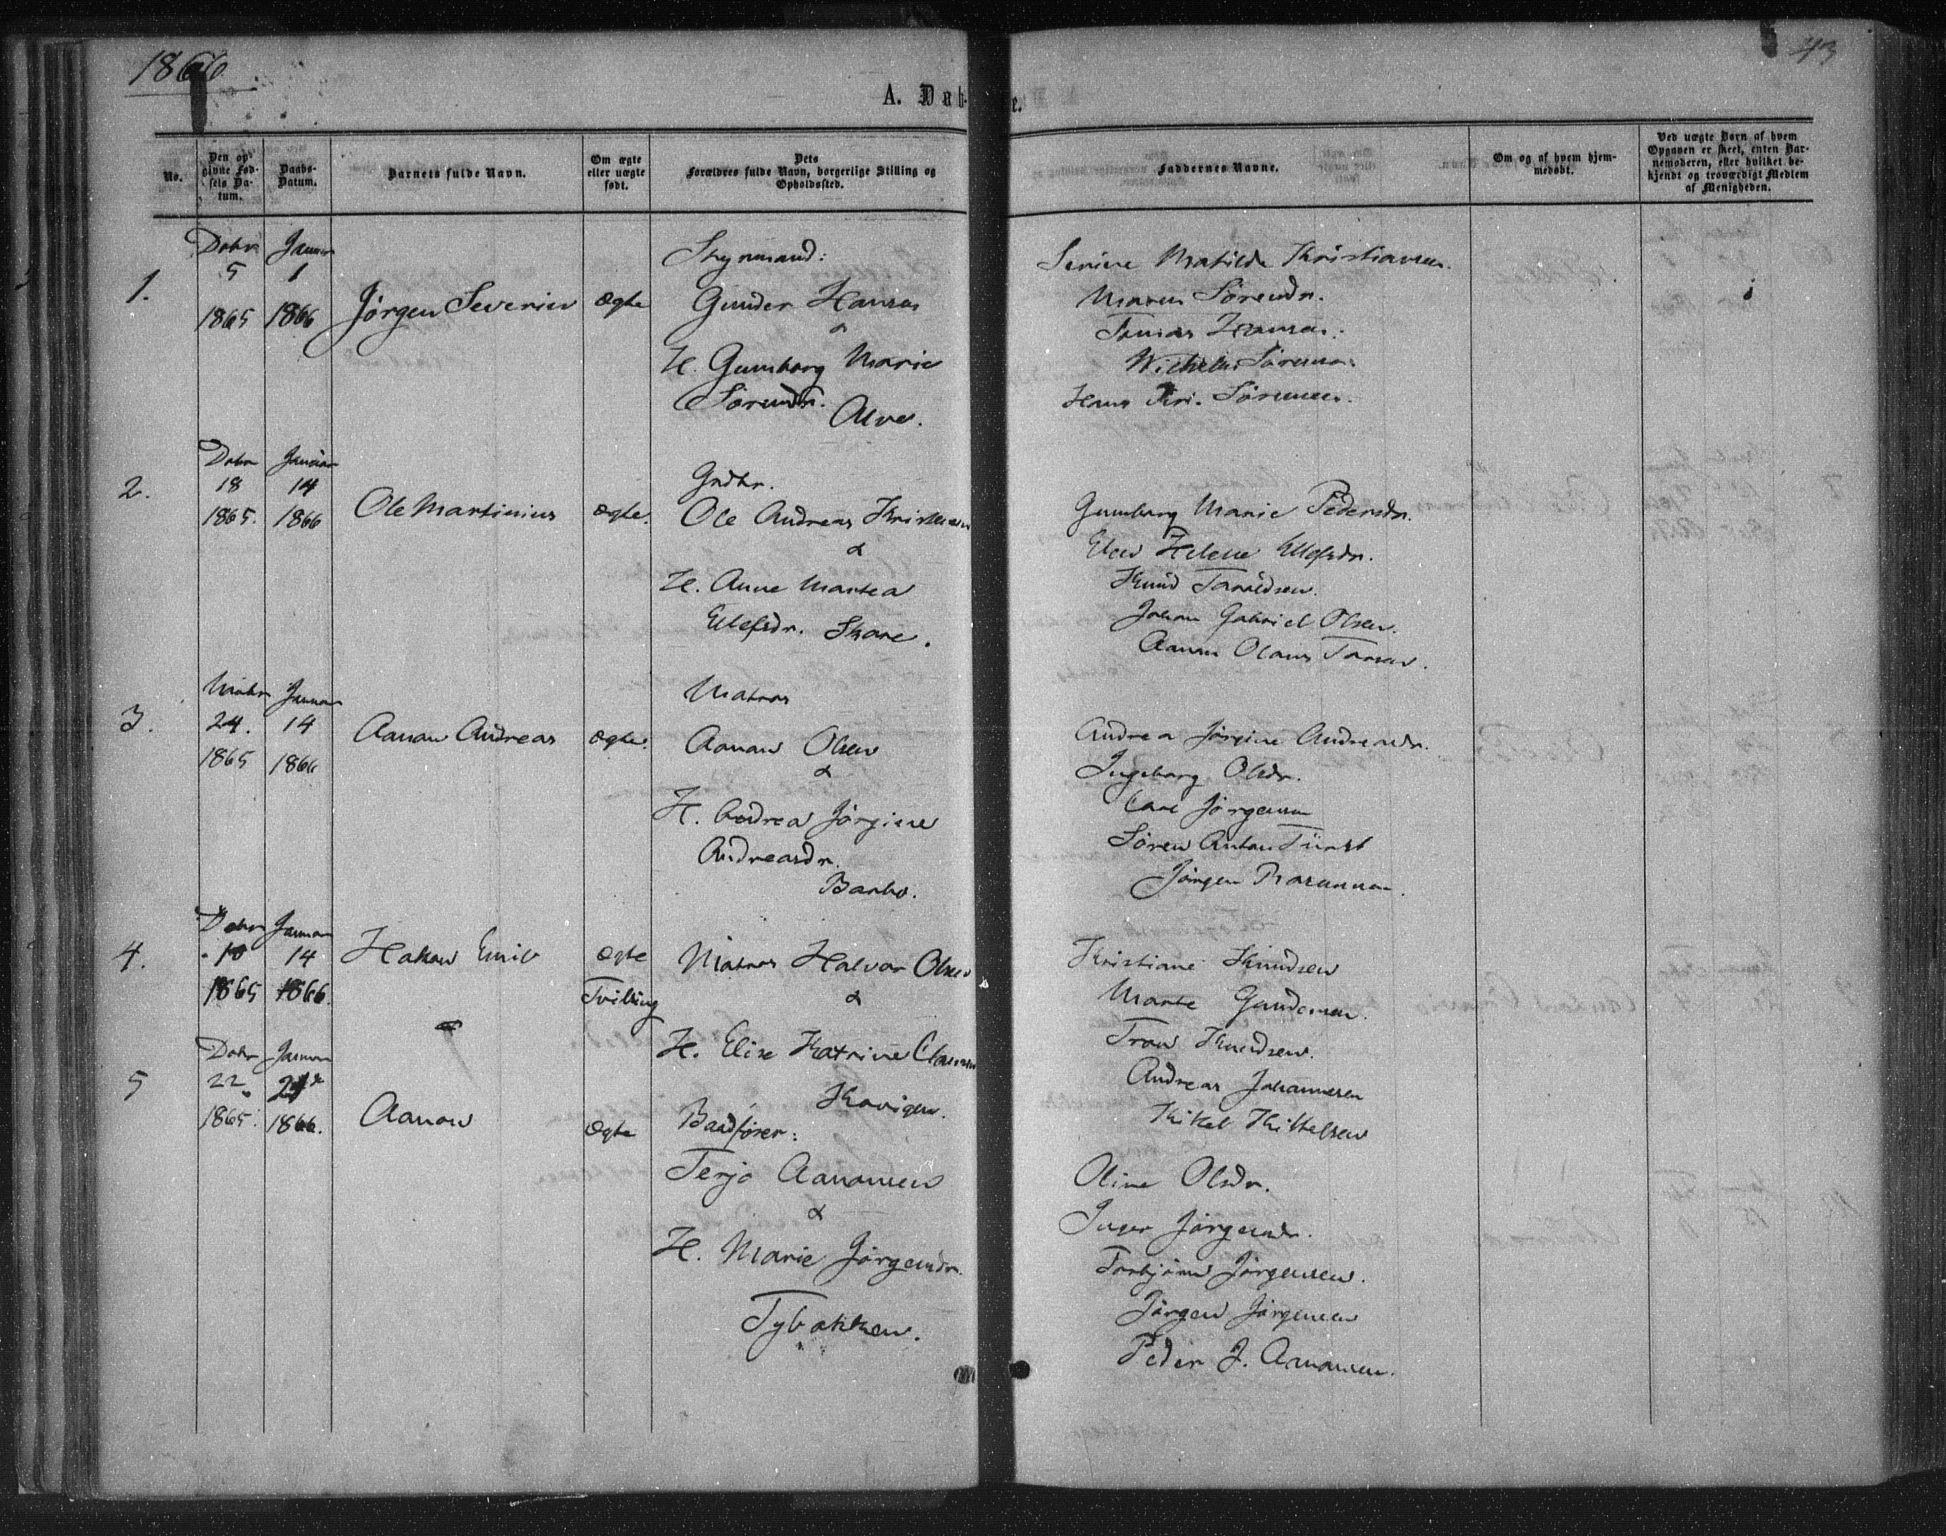 1866
43
A. Dab- e.
No.
Den op-
givne Fød-
sels Da-
tum.
Daabs-
Datum.
Barnets fulde Navn.
Om ægte
eller uægte
født.
Dets
Forældres fulde Navn, borgerlige Stilling og
Opholdssted.
Faddernes Navne.
Om og af hvem hjem-
medøbt.
Ved uægte Barn af hvem
Opgaven er skeet, enten Bar-
nemoderen, eller hvilket be-
kjendt og troværdigt Medlem
af Menigheden.
1.
Debr
5
1865
Januar
1
1866
Jørgen Severin
Ægte
Styrmand:
Gunder Hansen
&
H. Gunborg Marie
Sørensdr.
Alve.
Serine Matilde Kristiansen.
Maren Sørensdr.
Tomas Hansen.
Wilhelm Sørensen.
Hans Kri. Sørensen.
2.
Debr
18
1865.
Januar
14
1866
Ole Martinius
Ægte.
Grdbr.
Ole Andreas Kristensen
&
H. Anne Martea
Ellefsdr. Skare.
Gunborg Marie Pedersdr.
Elen Helene Ellefsdr.
Knud Taraldsen.
Johan Gabriel Olsen.
Aanon Olaus
3.
24.
1865
Januar
14
1866
Aanon Andreas
Ægte.
Matros
Aanon Olsen
&
H. Andrea Jørgine
Andreasdr.
Barbo.
Andrea Jørgine Andreasdr.
Ingeborg Olsdr.
Carl Jørgensen
Søren Anton Fürst
Jørgen Rasmussen.
4.
Debr
10
1865
Januar
14
1866.
Hakon Emil
Ægte
Tvilling
Matros Halvor Olsen
&
H. Elise Katrine Clausen
Kristiane Knudsen
Marte Gundersen.
Tron Knudsen.
Andreas Johannesen
Kikel Kittelsen
5
Debr
22
1865.
Januar
21
1866.
Aanon
Ægte
Baadfører:
Terje Aanonsen
&
H. Marie Jørgensdr.
Tybakken.
Oline Olsdr.
Inger Jørgensdr.
Torbjørn Jørgensen.
Jørgen Jørgensen
Peder J. Aanonsen.